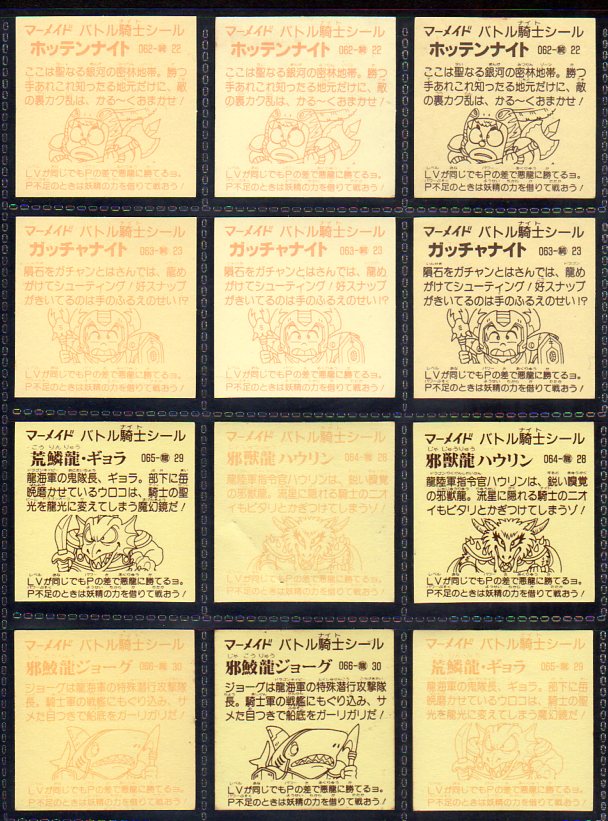 マーメイド バトル騎士シール
ホッテンナイト 062- 22
ここは聖なる銀河の密林地帯。勝つ
手あれこれ知ったる地元だけに、敵
の裏カク乱は、かる〜くおまかせ！
LVが同じでもPの差で悪龍に勝てるヨ。
P不足のときは妖精の力を借りて戦おう！
マーメイド バトル騎士シール
ホッテンナイト 062- 22
ここは聖なる銀河の密林地帯。勝つ
手あれこれ知ったる地元だけに、敵
の裏カク乱は、かる〜くおまかせ！
LVが同じでもPの差で悪龍に勝てるヨ。
P不足のときは妖精の力を借りて戦おう！
マーメイド バトル騎士シール
ホッテンナイト 062- 22
ここは聖なる銀河の密林地帯。勝つ
手あれこれ知ったる地元だけに、敵
の裏カク乱は、かる〜くおまかせ！
LVが同じでもPの差で悪龍に勝てるヨ。
P不足のときは妖精の力を借りて戦おう！
マーメイド バトル騎士シール
ガッチャナイト 063- 23
隕石をガチャンとはさんでは、龍め
がけてシューティング！好スナップ
がきいてるのは手のふるえのせい!?
LVが同じでもPの差で悪龍に勝てるヨ。
P不足のときは妖精の力を借りて戦おう！
マーメイド バトル騎士シール
ガッチャナイト 063- 23
隕石をガチャンとはさんでは、龍め
がけてシューティング！好スナップ
がきいてるのは手のふるえのせい!?
LVが同じでもPの差で悪龍に勝てるヨ。
P不足のときは妖精の力を借りて戦おう！
マーメイド バトル騎士シール
ガッチャナイト 063- 23
隕石をガチャンとはさんでは、龍め
がけてシューティング！好スナップ
がきいてるのは手のふるえのせい!?
LVが同じでもPの差で悪龍に勝てるヨ。
P不足のときは妖精の力を借りて戦おう！
マーメイド バトル騎士シール
荒鱗龍・ギョラ 065- 29
龍海軍の鬼隊長、ギョラ。部下に毎
晩磨かせているウロコは、騎士の聖
光を龍光に変えてしまう魔幻鏡だ！
LVが同じでもPの差で悪龍に勝てるヨ。
P不足のときは妖精の力を借りて戦おう！
マーメイド バトル騎士シール
邪獣龍ハウリン 064- 28
龍陸軍指令官ハウリンは、鋭い臭覚
の邪獣龍。流星に隠れる騎士のニオ
イもピタリとかぎつけてしまうゾ！
LVが同じでもPの差で悪龍に勝てるヨ。
P不足のときは妖精の力を借りて戦おう！
マーメイド バトル騎士シール
邪獣龍ハウリン 064- 28
龍陸軍指令官ハウリンは、鋭い臭覚
の邪獣龍。流星に隠れる騎士のニオ
イもピタリとかぎつけてしまうゾ！
LVが同じでもPの差で悪龍に勝てるヨ。
P不足のときは妖精の力を借りて戦おう！
マーメイド バトル騎士シール
邪鮫龍ジョーグ 066- 30
ジョーグは龍海軍の特殊潜行攻撃隊
長。騎士軍の戦艦にもぐり込み、サ
メた目つきで船底をガーリガリだ！
LVが同じでもPの差で悪龍に勝てるヨ。
P不足のときは妖精の力を借りて戦おう！
マーメイド バトル騎士シール
邪鮫龍ジョーグ 066- 30
ジョーグは龍海軍の特殊潜行攻撃隊
長。騎士軍の戦艦にもぐり込み、サ
メた目つきで船底をガーリガリだ！
LVが同じでもPの差で悪龍に勝てるヨ。
P不足のときは妖精の力を借りて戦おう！
マーメイド バトル騎士シール
荒鱗龍・ギョラ 065- 29
龍海軍の鬼隊長、ギョラ。部下に毎
晩磨かせているウロコは、騎士の聖
光を龍光に変えてしまう魔幻鏡だ！
LVが同じでもPの差で悪龍に勝てるヨ。
P不足のときは妖精の力を借りて戦おう！